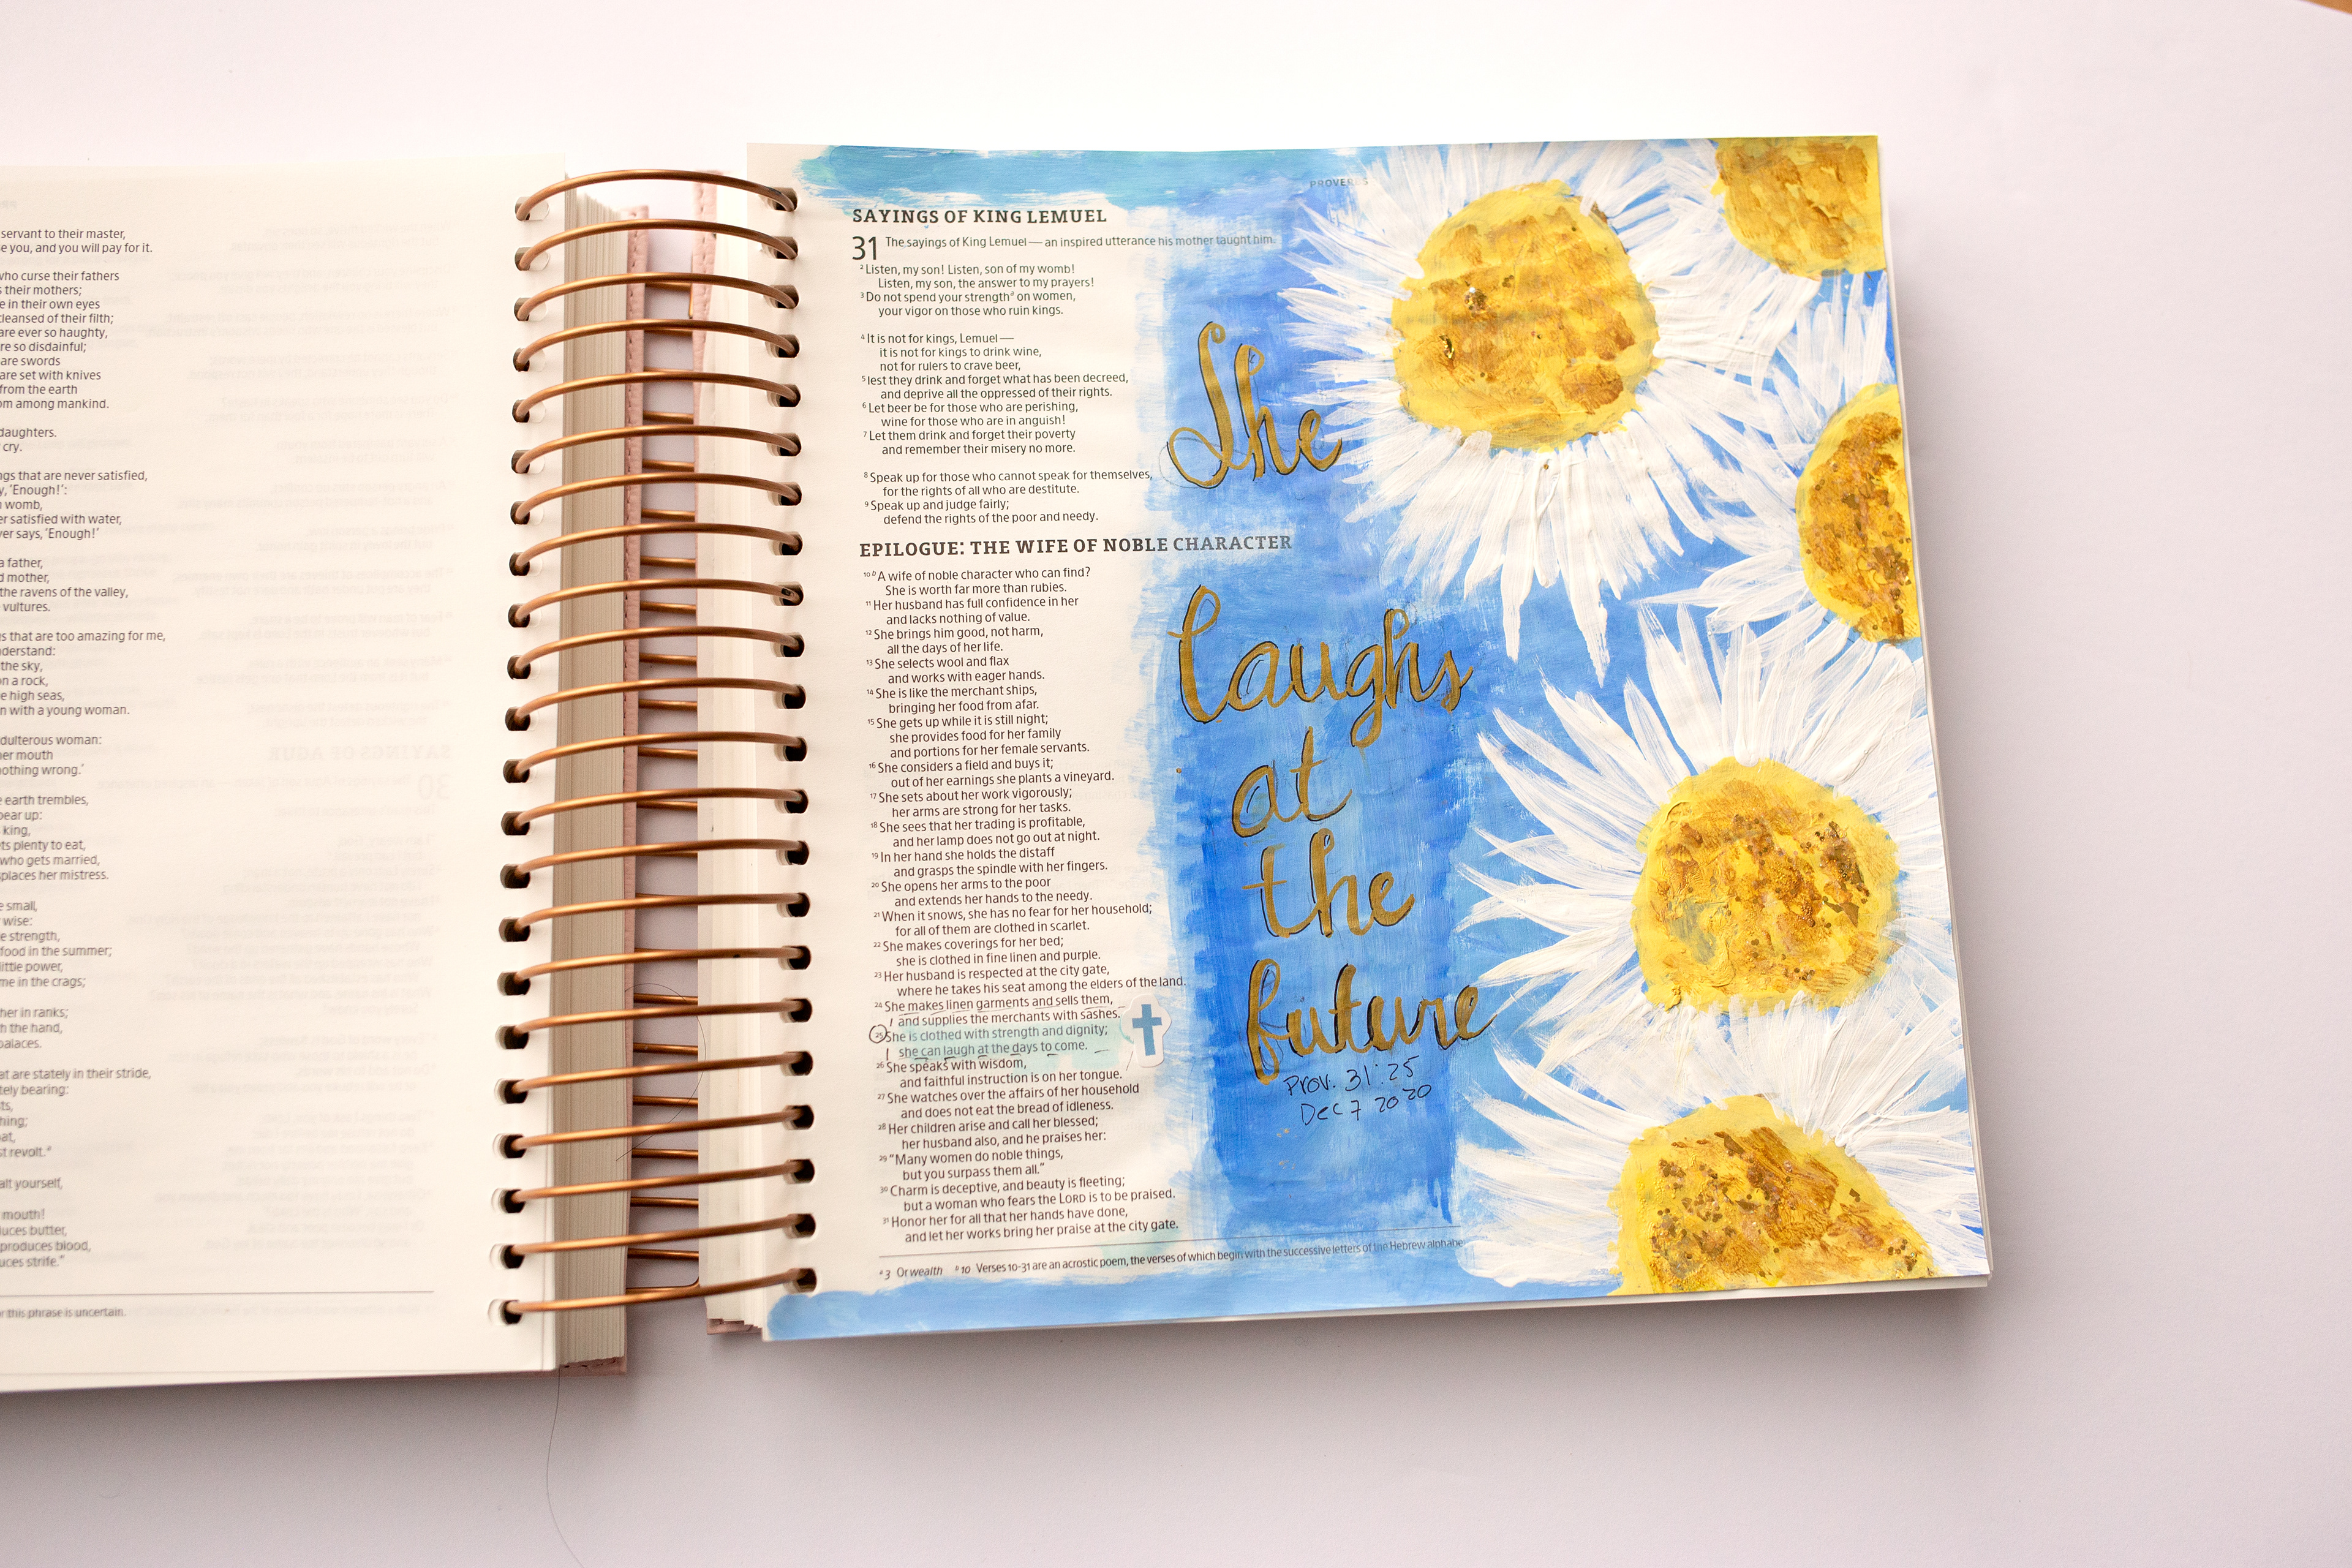 servant to their master,
e you, and you will pay for it.
who curse their fathers
s their mothers;
e in their own eyes
cleansed of their filth;
are ever so haughty,
re so disdainful;
are swords
are set with knives
from the earth
om among mankind.
daughters.
cry.
ngs that are never satisfied,
y, ‘Enough!’:
womb,
er satisfied with water,
ver says, ‘Enough!’
a father,
d mother,
the ravens of the valley,
vultures.
s that are too amazing for me,
nderstand:
the sky,
on a rock,
e high seas,
n with a young woman.
dulterous woman:
her mouth
nothing wrong.’
e earth trembles,
bear up:
king,
ets plenty to eat,
who gets married,
splaces her mistress.
e small,
wise:
e strength,
food in the summer;
little power,
me in the crags;
her in ranks;
h the hand,
palaces.
at are stately in their stride,
tely bearing:
ts,
hing;
oat,
st revolt.
alt yourself,
mouth!
duces butter,
produces blood,
uces strife.”
r this phrase is uncertain.
PROVERBS
SAYINGS OF KING LEMUEL
31 The sayings of King Lemuel — an inspired utterance his mother taught him.
2 Listen, my son! Listen, son of my womb!
Listen, my son, the answer to my prayers!
3 Do not spend your strength a on women,
your vigor on those who ruin kings.
4 It is not for kings, Lemuel —
it is not for kings to drink wine,
not for rulers to crave beer,
5 lest they drink and forget what has been decreed,
and deprive all the oppressed of their rights.
6 Let beer be for those who are perishing,
wine for those who are in anguish!
7 Let them drink and forget their poverty
and remember their misery no more.
8 Speak up for those who cannot speak for themselves,
for the rights of all who are destitute.
9 Speak up and judge fairly;
defend the rights of the poor and needy.
EPILOGUE: THE WIFE OF NOBLE CHARACTER
10 b A wife of noble character who can find?
She is worth far more than rubies.
11 Her husband has full confidence in her
and lacks nothing of value.
12 She brings him good, not harm,
all the days of her life.
13 She selects wool and flax
and works with eager hands.
14 She is like the merchant ships,
bringing her food from afar.
15 She gets up while it is still night;
she provides food for her family
and portions for her female servants.
16 She considers a field and buys it;
out of her earnings she plants a vineyard.
17 She sets about her work vigorously;
her arms are strong for her tasks.
18 She sees that her trading is profitable,
and her lamp does not go out at night.
19 In her hand she holds the distaff
and grasps the spindle with her fingers.
20 She opens her arms to the poor
and extends her hands to the needy.
21 When it snows, she has no fear for her household;
for all of them are clothed in scarlet.
22 She makes coverings for her bed;
she is clothed in fine linen and purple.
23 Her husband is respected at the city gate,
where he takes his seat among the elders of the land.
24 She makes linen garments and sells them,
and supplies the merchants with sashes.
25 She is clothed with strength and dignity;
she can laugh at the days to come.
26 She speaks with wisdom,
and faithful instruction is on her tongue.
27 She watches over the affairs of her household
and does not eat the bread of idleness.
28 Her children arise and call her blessed;
her husband also, and he praises her:
29 “Many women do noble things,
but you surpass them all.”
30 Charm is deceptive, and beauty is fleeting;
but a woman who fears the LORD is to be praised.
31 Honor her for all that her hands have done,
and let her works bring her praise at the city gate.
a 3 Or wealth b 10 Verses 10-31 are an acrostic poem, the verses of which begin with the successive letters of the Hebrew alphabe
She
laughs
at
the
future
Prov. 31:25
Dec 7 2020